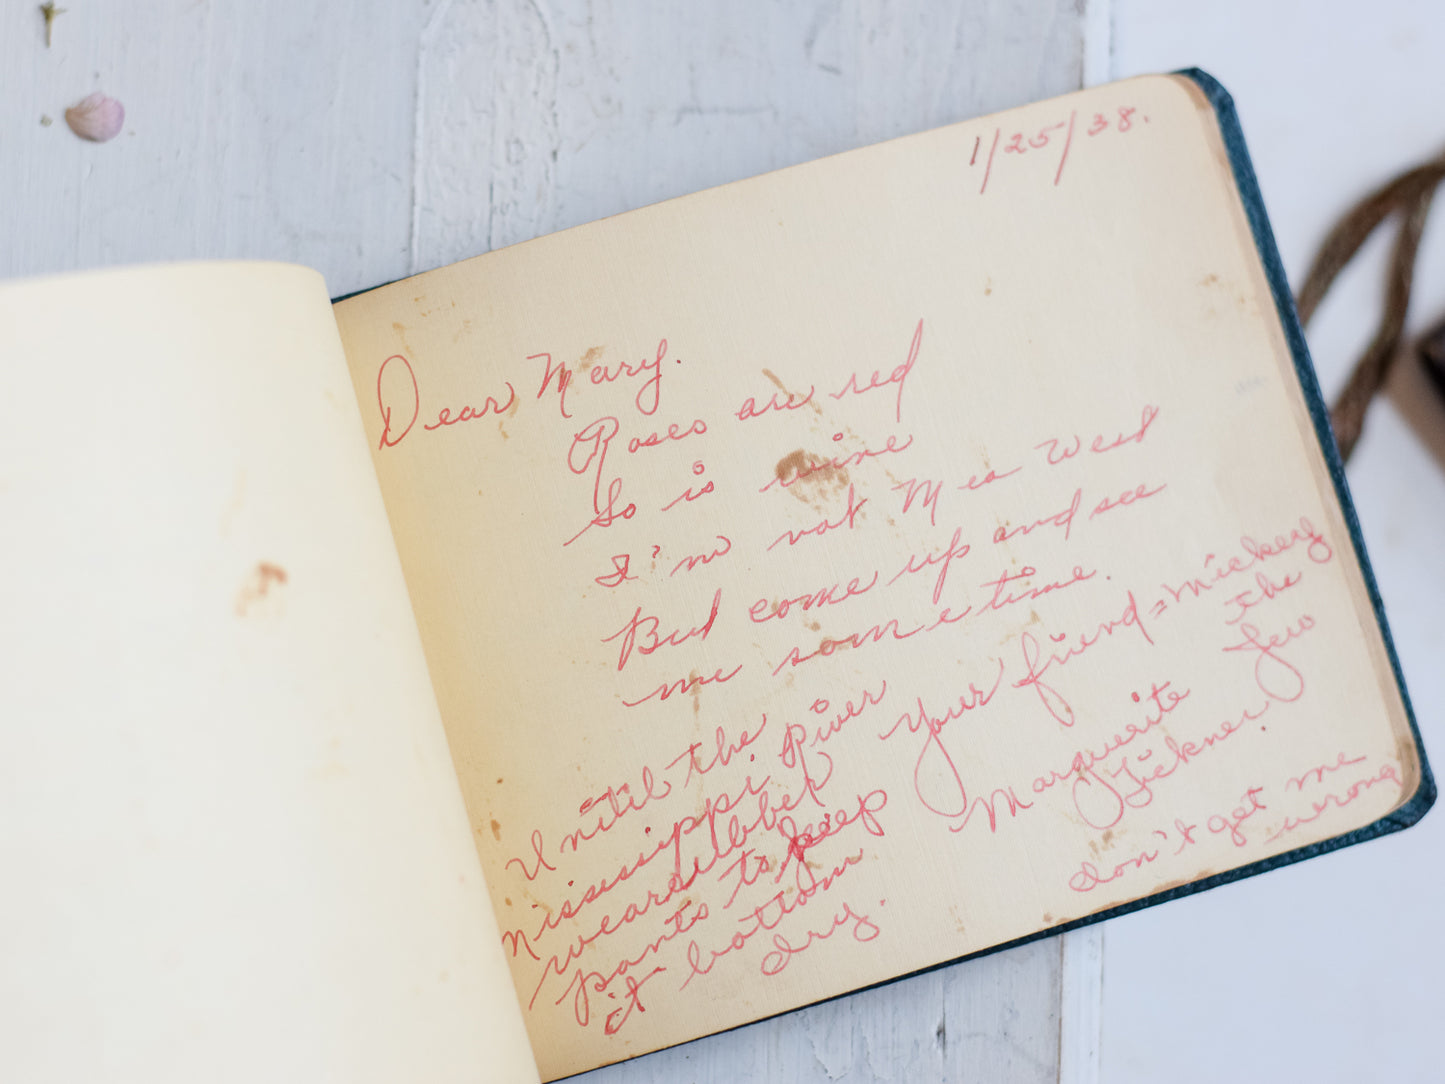 1/25/38.
Dear Mary.
Roses are red
So is wine
I'm not Mea West
But come up and see
me sometime.
Until the
Mississippi river
wears rubber
pants to keep
it bottom
dry.
Your friend = Mickey
the
few
Marguerite
don't get me
wrong